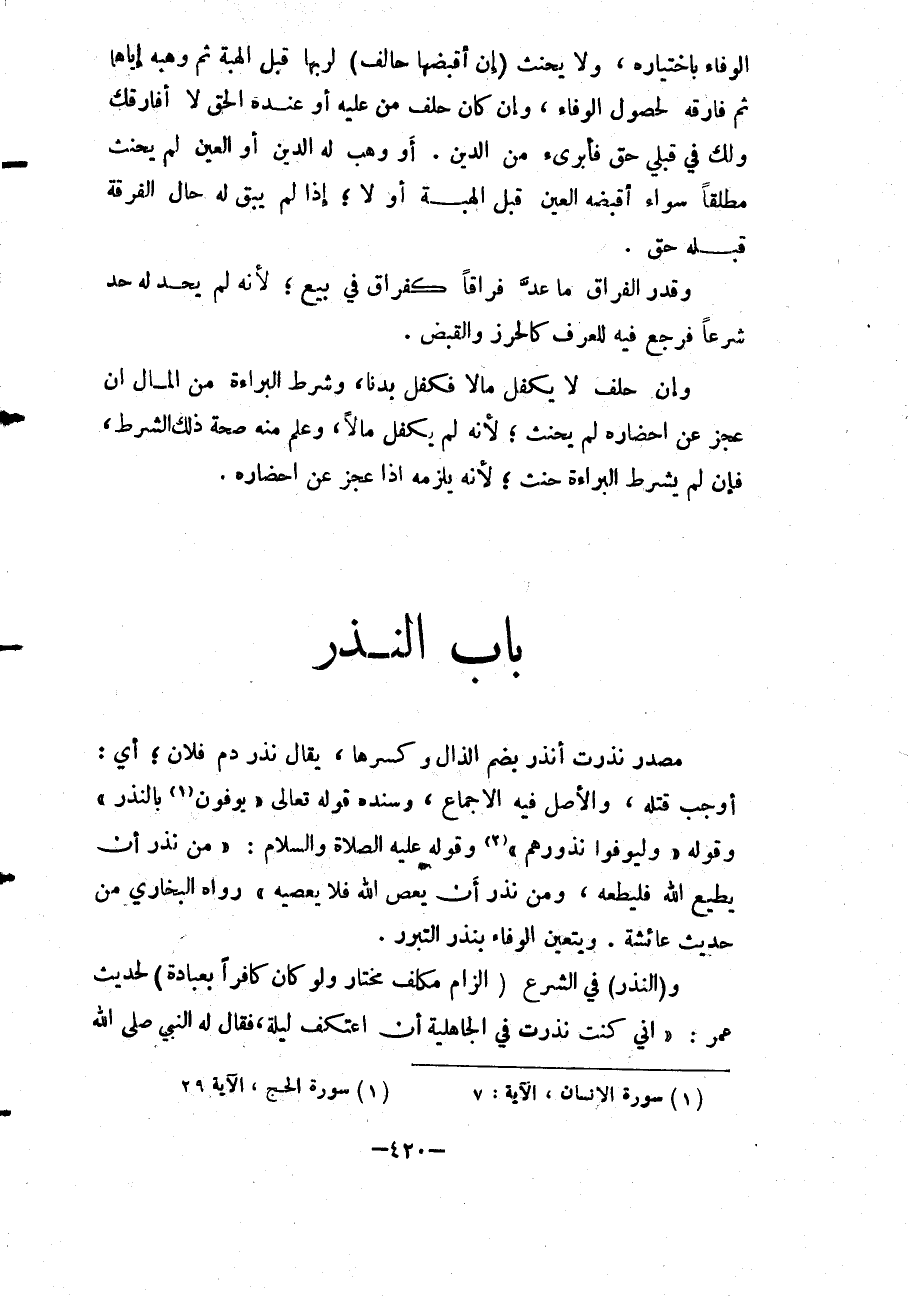 الوفاء باختياره ، ولا يحنث (إن أقبضها حالف) لربها قبل الهبة ثم وهبه إياها
ثم فارقه لحصول الوفاء ، وان كان حلف من عليه أو عنده الحق لا أفارقك
ولك في قبلي حق فأبرىء من الدين . أو وهب له الدين أو العين لم يحنث
مطلقاً سواء أقبضه العين قبل الهبة أو لا ؛ إذا لم يبق له حال الفرقة
قبله حق .
وقدر الفراق ما عدَّ فراقاً كفراق في بيع ؛ لأنه لم يحد له حد
شرعاً فرجع فيه للعرف كالحرز والقبض .
وإن حلف لا يكفل مالا فكفل بدنا، وشرط البراءة من المال ان
عجز عن احضاره لم يحنث ؛ لأنه لم يكفل مالاً، وعلم منه صحة ذلك الشرط،
فإن لم يشرط البراءة حنث ؛ لأنه يلزمه اذا عجز عن احضاره .
باب النذر
مصدر نذرت أنذر بضم الذال وكسرها ، يقال نذر دم فلان ؛ أي :
أوجب قتله ، والأصل فيه الاجماع ، وسنده قوله تعالى « يوفون(١) بالنذر »
وقوله « وليوفوا نذورهم »(٢) وقوله عليه الصلاة والسلام : « من نذر أن
يطيع الله فليطعه ، ومن نذر أن يعص الله فلا يعصيه » رواه البخاري من
حديث عائشة . ويتعين الوفاء بنذر التبرر .
و(النذر) في الشرع ( الزام مكلف مختار ولو كان كافراً بعبادة) لحديث
عمر : « اني كنت نذرت في الجاهلية أن اعتكف ليلة، فقال له النبي صلى الله
(١) سورة الانسان ، الآية : ٧ (١) سورة الحج ، الآية ٢٩
—٤٢٠—